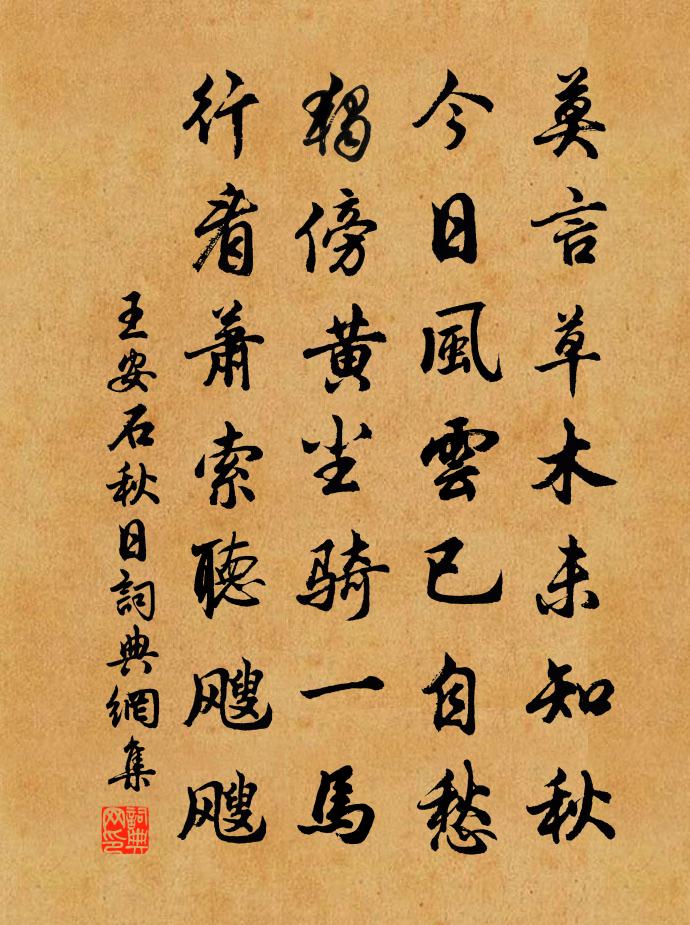 莫言草木未知秋
今日風雲已自愁
獨傍黃尘骑一馬
行看蕭索聽飕飕
王安石秋日詞典網集
詞典网印